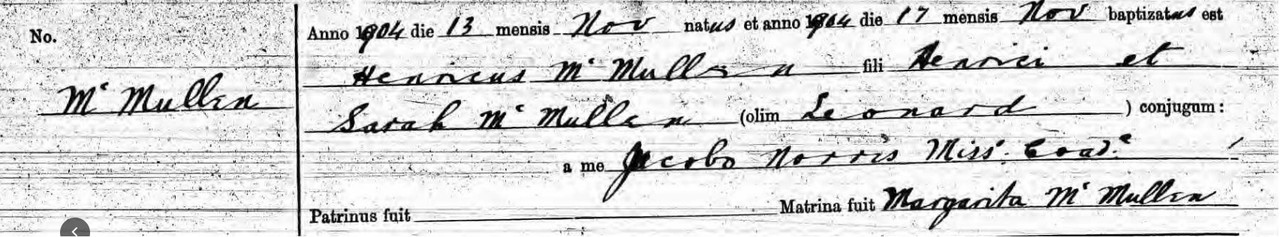 No.
McMullen
Anno 1904 die 13 mensis Nov natus et anno 1904 die 17 mensis Nov baptizatus est
Henricus McMullen fili Henrici et
Sarah McMullen (olim Leonard) conjugum:
a me Jacobo Norris Miss. Coadr.
Patrinus fuit Matrina fuit Margarita McMullen